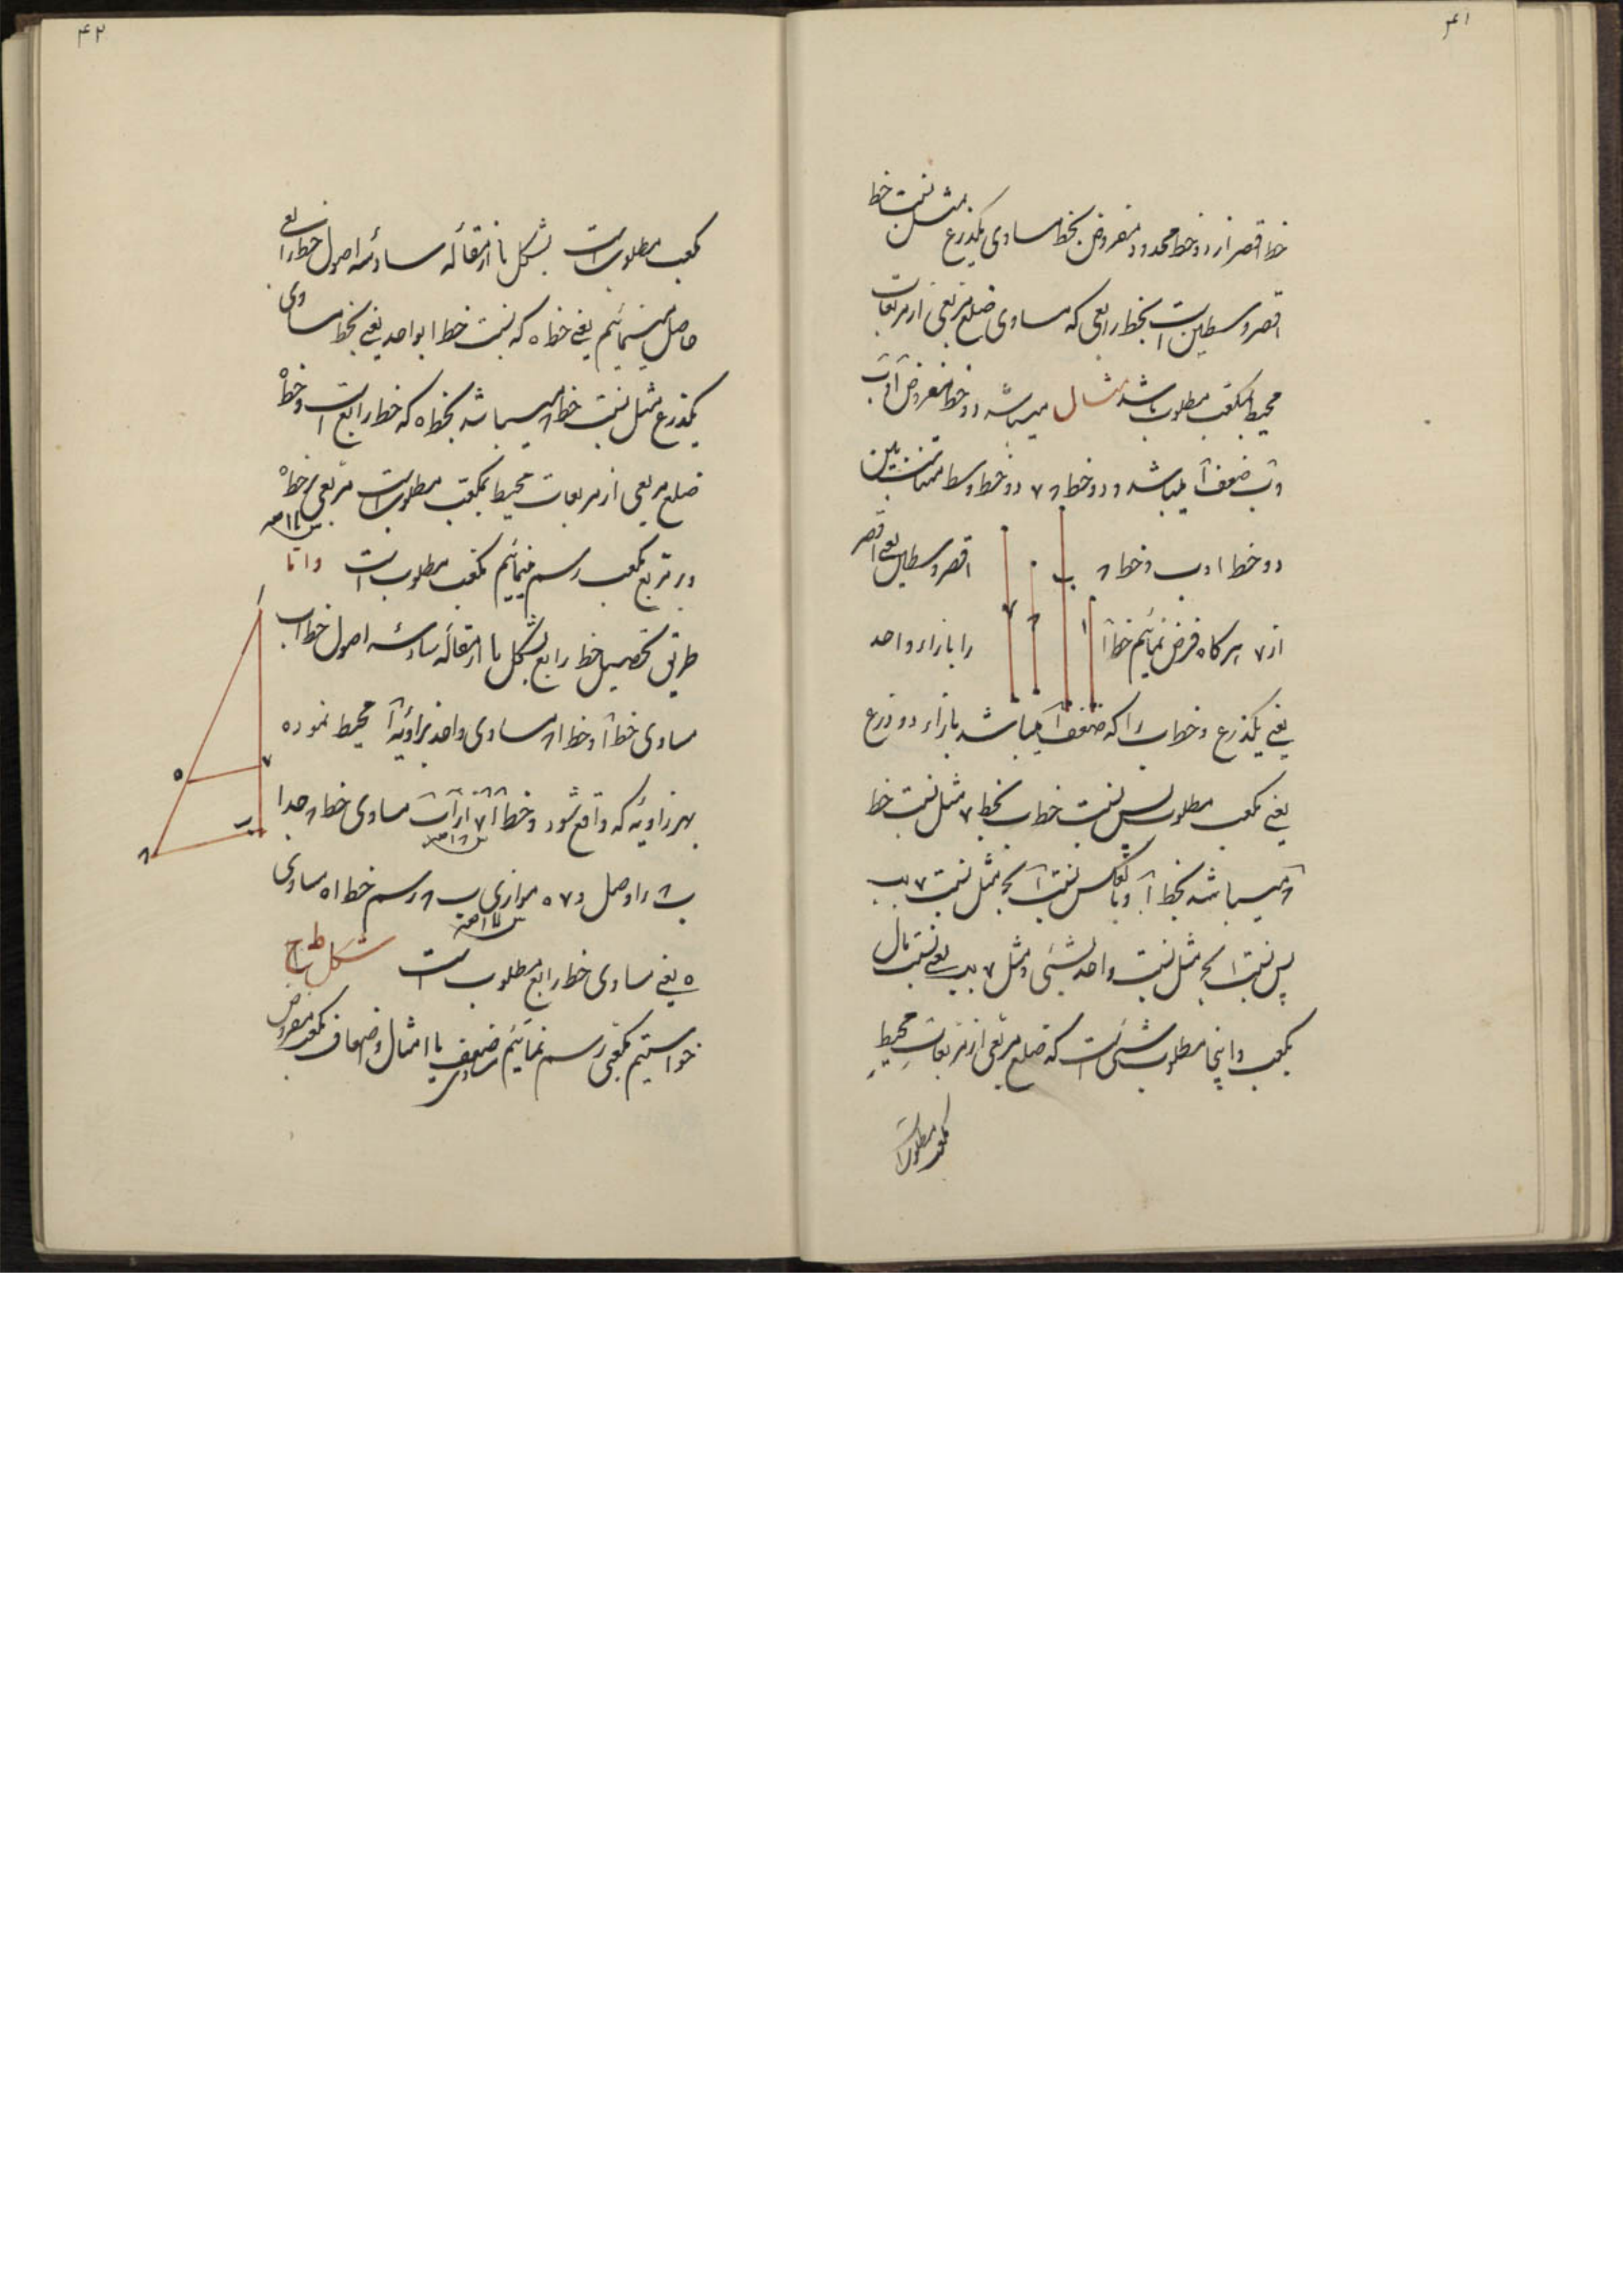 ۴۱
خط اقصر از دو خط محدود مفروض بخط مساوی یکذرع مثل نسبت خط
اقصر وسطین است بخط رابعی که مساوی ضلع مربعی از مربعات
محیط بمکعب مطلوب باشد مثال میباشد دو خط مفروض آ و ب
و ب ضعف آ میباشد و دو خط ۸ ۷ دو خط وسط متناسب بین
دو خط ا و ب و خط ۸ اقصر وسطین یعنی اقصر
از ۷ هرگاه فرض نمائیم خط آ را بازاء واحد
یعنی یکذرع و خط ب را که ضعف آ میباشد بازاء دو ذرع
یعنی مکعب مطلوب پس نسبت خط ب بخط ۷ مثل نسبت خط
۸ میباشد بخط آ و بالعکس نسبت آ بح مثل نسبت ۷ بب
پس نسبت ا بح مثل نسبت واحد بشیئی و مثل ۷ بب یعنی نسبت مال
بمکعب و اینجا مطلوب شیئی است که ضلع مربعی از مربعات محیط
مکعب مطلوب است
۴۲
مکعب مطلوب است بشکل یا از مقاله سادسه اصول خط رابعی
حاصل مینمائیم یعنی خط ه که نسبت خط ا بواحد یعنی بخط مساوی
یکذرع مثل نسبت خط ۸ میباشد بخط ه که خط رابع است و خط ه
ضلع مربعی از مربعات محیط بمکعب مطلوب است مربعی بر خط ه
و بر مربع مکعب رسم مینمائیم مکعب مطلوب است و اما
طریق تحصیل خط رابع بشکل یا از مقاله سادسه اصول خط اب
مساوی خط آ و خط ا۸ مساوی واحد بزاویه آ محیط نموده
بهر زاویه که واقع شود و خط ا۷ از آب مساوی خط ۸ جدا
ب۸ را وصل و ۷ه موازی ب۸ رسم خط اه مساوی
ه یعنی مساوی خط رابع مطلوب است شکل ط ج
خواستیم مکعبی رسم نمائیم مساوی ضعف یا امثال و اضعاف مکعب مفروض